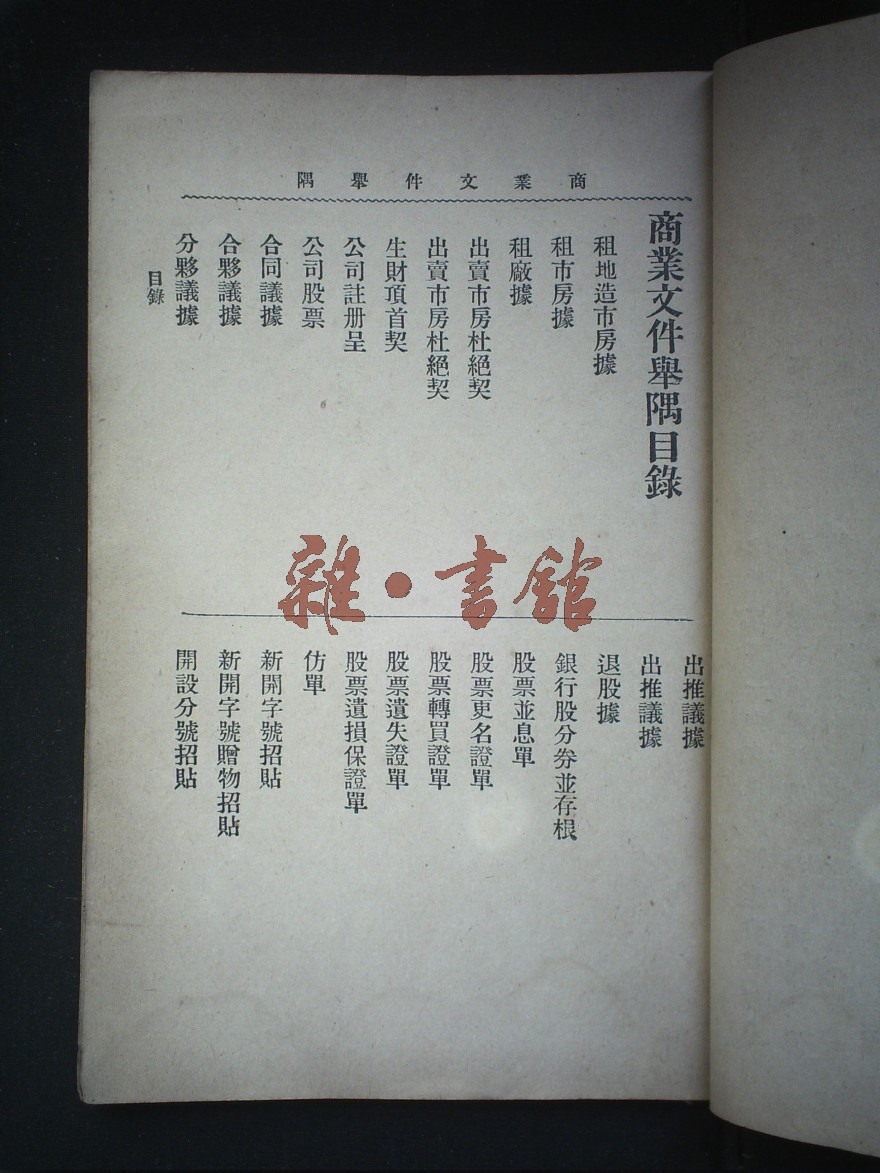 商業文件舉隅
商業文件舉隅目錄
租地造市房據
租市房據
租廠據
出賣市房杜絕契
出賣市房杜絕契
生財頂首契
公司註册呈
公司股票
合同議據
合夥議據
分夥議據
目錄
出推議據
出推議據
退股據
銀行股分券並存根
股票並息單
股票更名證單
股票轉買證單
股票遺失證單
股票遺損保證單
仿單
新開字號招貼
新開字號贈物招貼
開設分號招貼
雜·書館